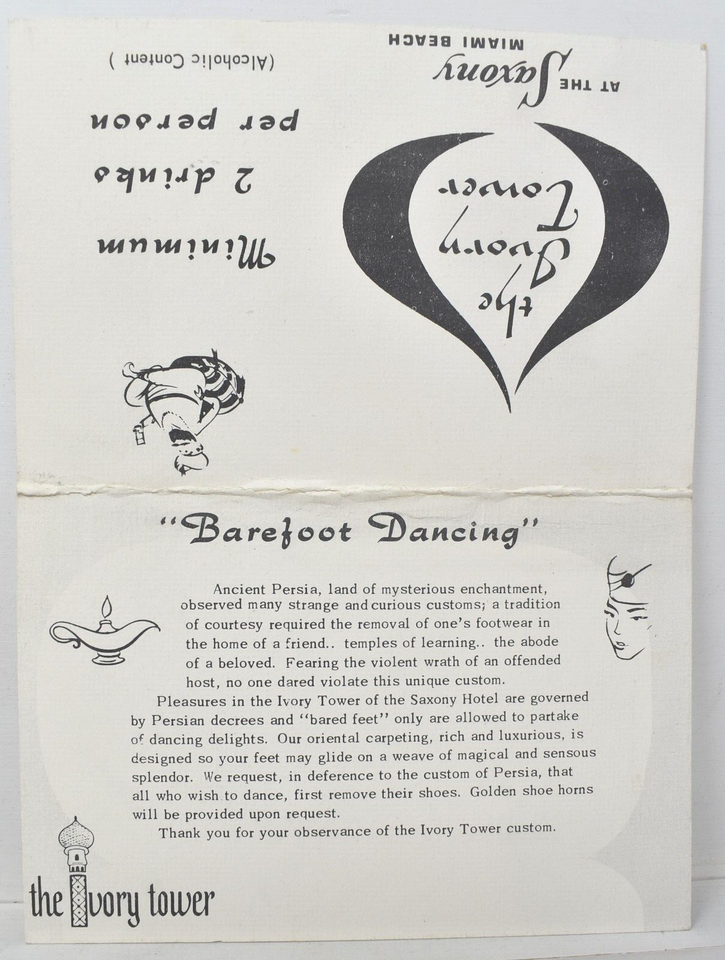 AT THE Saxony
MIAMI BEACH
the
Ivory
Tower
Minimum
2 drinks
per person
(Alcoholic Content)
"Barefoot Dancing"
Ancient Persia, land of mysterious enchantment,
observed many strange and curious customs; a tradition
of courtesy required the removal of one's footwear in
the home of a friend.. temples of learning.. the abode
of a beloved. Fearing the violent wrath of an offended
host, no one dared violate this unique custom.
Pleasures in the Ivory Tower of the Saxony Hotel are governed
by Persian decrees and "bared feet" only are allowed to partake
of dancing delights. Our oriental carpeting, rich and luxurious, is
designed so your feet may glide on a weave of magical and sensous
splendor. We request, in deference to the custom of Persia, that
all who wish to dance, first remove their shoes. Golden shoe horns
will be provided upon request.
Thank you for your observance of the Ivory Tower custom.
the Ivory tower